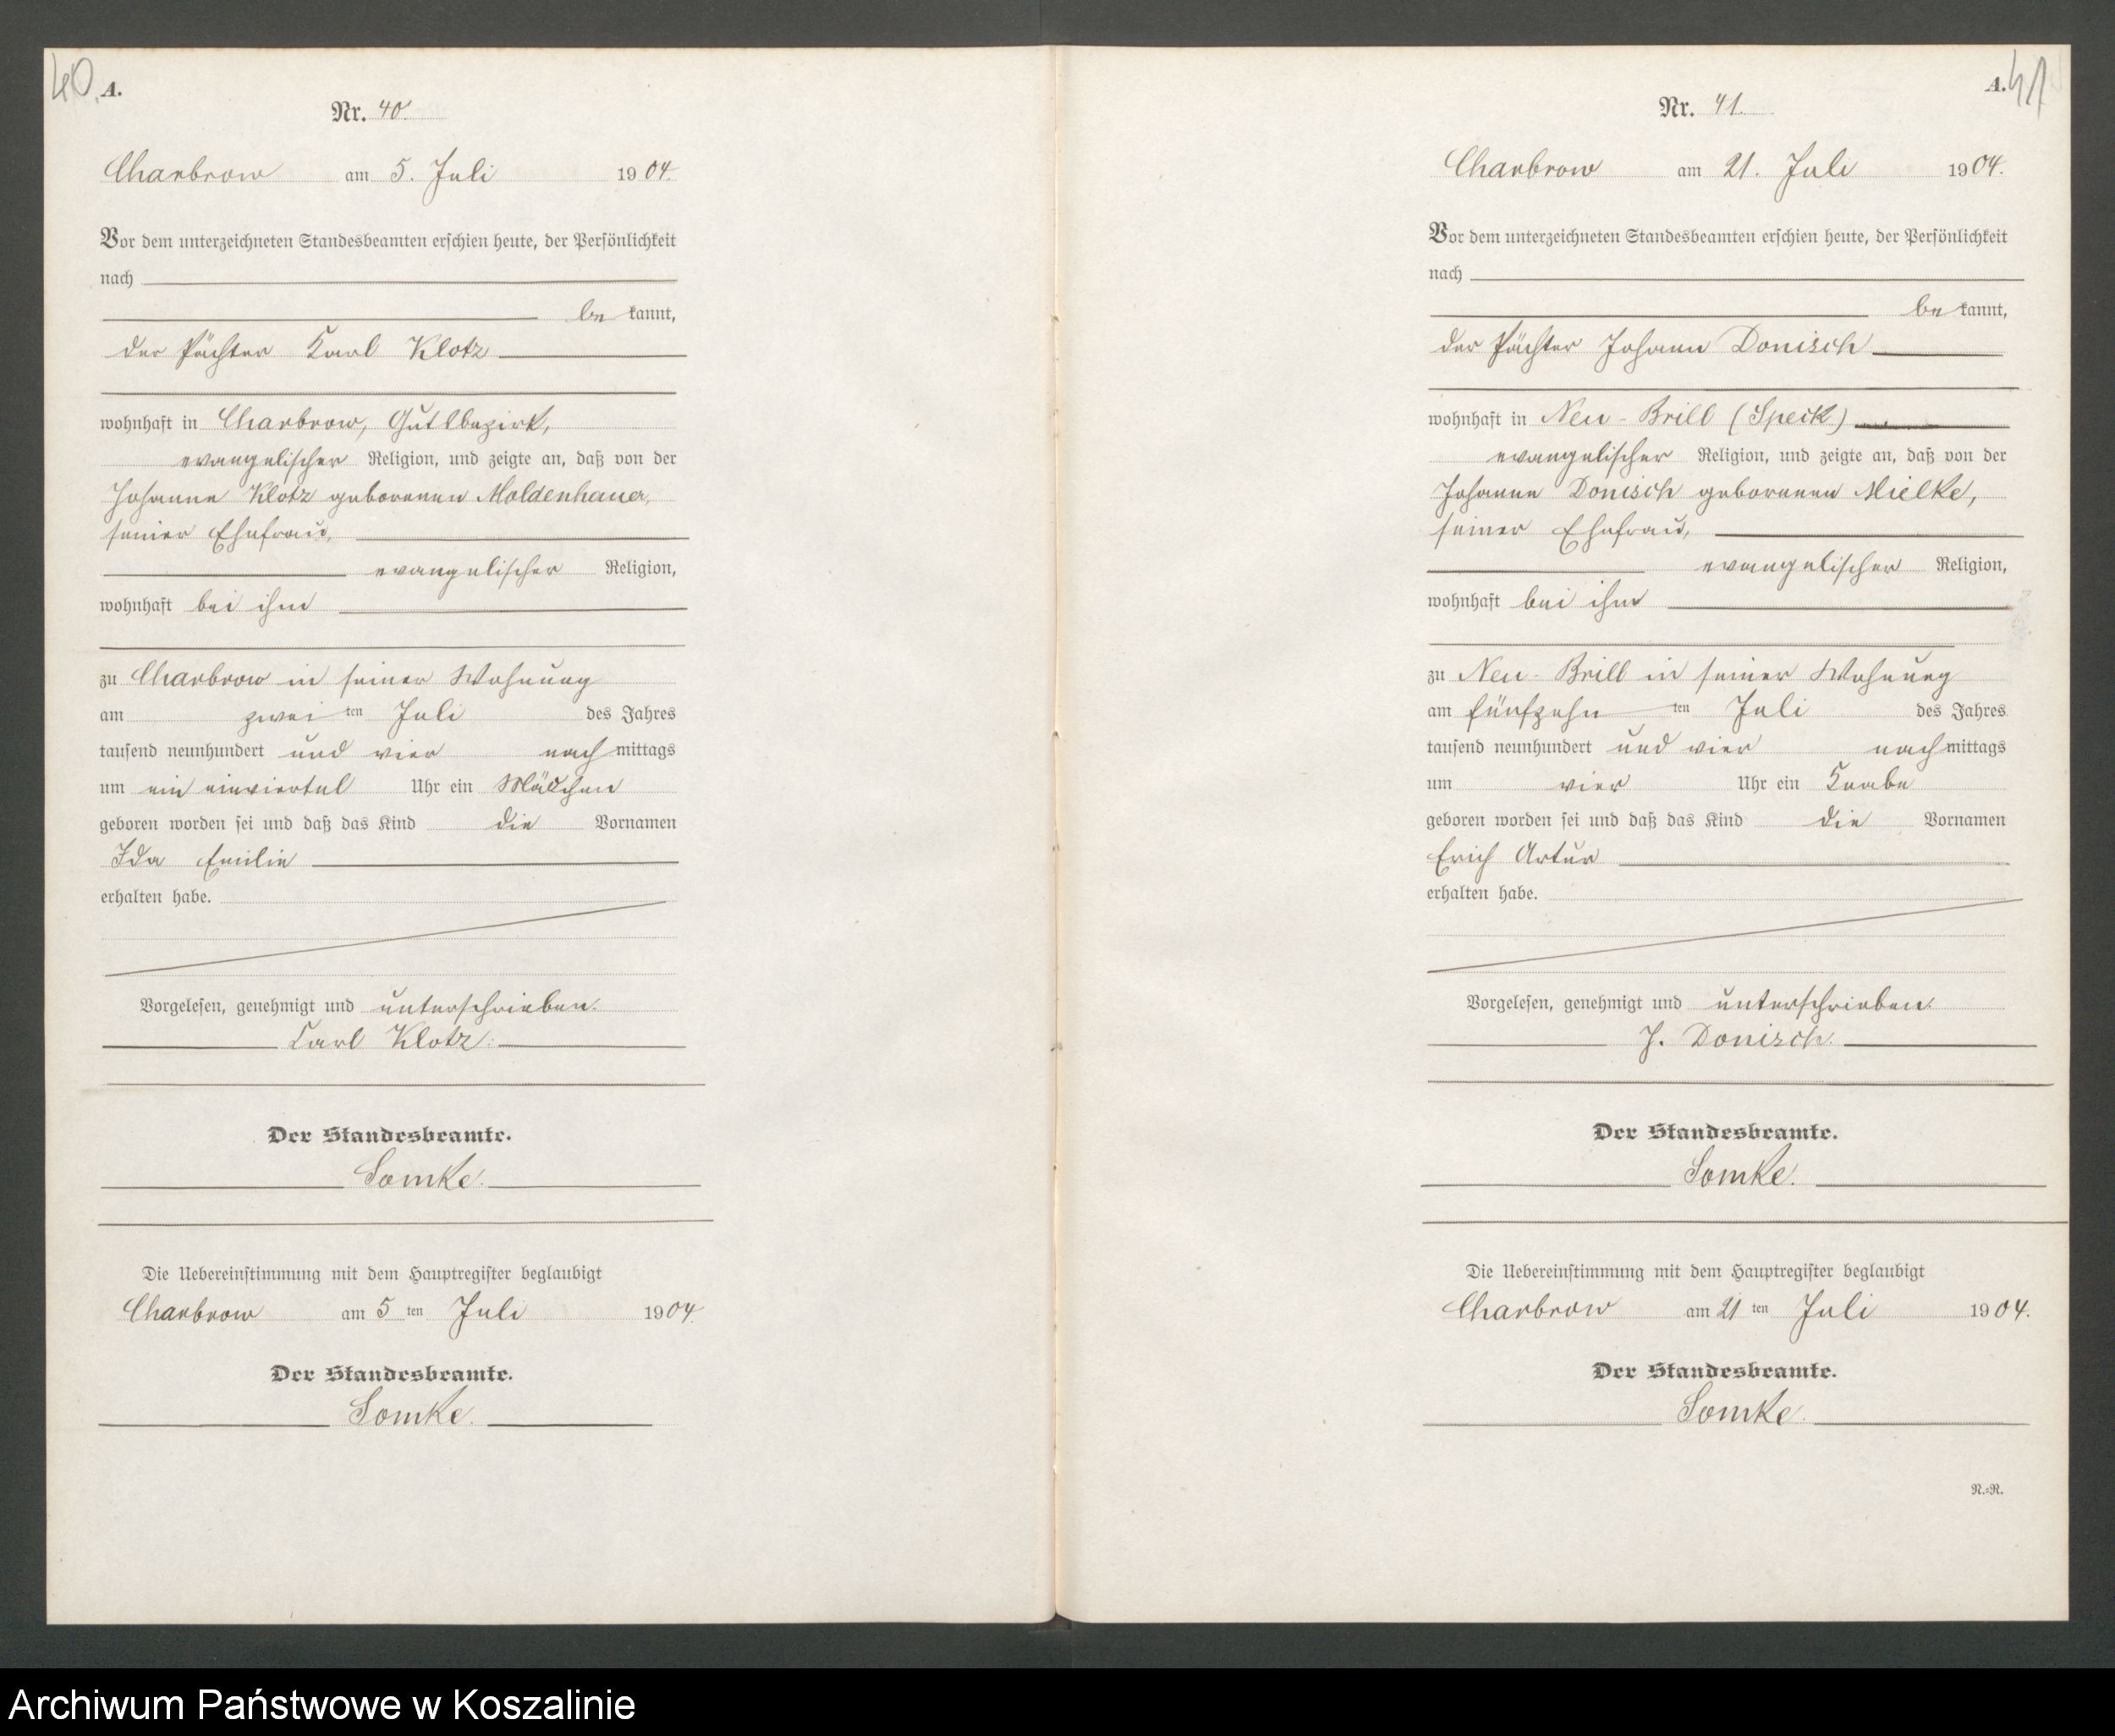 40. A.
Nr. 40.
Charbrow am 5. Juli 1904.
Vor dem unterzeichneten Standesbeamten erschien heute, der Persönlichkeit
nach
be kannt,
der Pächter Karl Klotz
wohnhaft in Charbrow, Gutsbezirk,
evangelischer Religion, und zeigte an, daß von der
Johanne Klotz geborenen Moldenhauer,
seiner Ehefrau,
evangelischer Religion,
wohnhaft bei ihm
zu Charbrow in seiner Wohnung
am zwei ten Juli des Jahres
tausend neunhundert und vier nach mittags
um ein einviertel Uhr ein Mädchen
geboren worden sei und daß das Kind die Vornamen
Ida Emilie
erhalten habe.
Vorgelesen, genehmigt und unterschrieben.
Carl Klotz.
Der Standesbeamte.
Somke.
Die Uebereinstimmung mit dem Hauptregister beglaubigt
Charbrow am 5 ten Juli 1904.
Der Standesbeamte.
Somke.
A. 41
Nr. 41.
Charbrow am 21. Juli 1904.
Vor dem unterzeichneten Standesbeamten erschien heute, der Persönlichkeit
nach
be kannt,
der Pächter Johann Donisch
wohnhaft in Neu-Brill (Speck)
evangelischer Religion, und zeigte an, daß von der
Johanne Donisch geborenen Mielke,
seiner Ehefrau,
evangelischer Religion,
wohnhaft bei ihm
zu Neu-Brill in seiner Wohnung
am fünfzehn ten Juli des Jahres
tausend neunhundert und vier nach mittags
um vier Uhr ein Knabe
geboren worden sei und daß das Kind die Vornamen
Erich Artur
erhalten habe.
Vorgelesen, genehmigt und unterschrieben.
J. Donisch.
Der Standesbeamte.
Somke.
Die Uebereinstimmung mit dem Hauptregister beglaubigt
Charbrow am 21 ten Juli 1904.
Der Standesbeamte.
Somke.
N.=R.
Archiwum Państwowe w Koszalinie